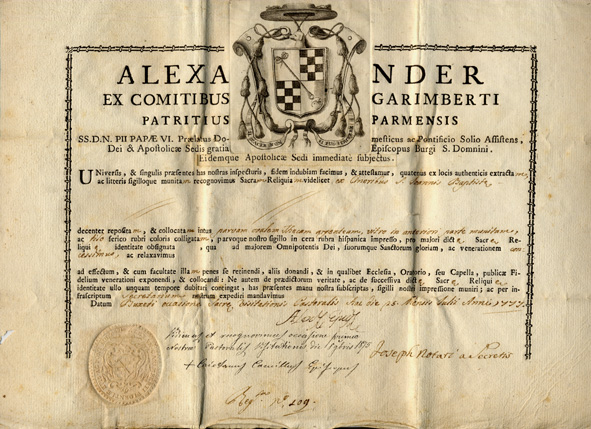 ALEXANDER
EX COMITIBUS GARIMBERTI
PATRITIUS PARMENSIS
SS.D.N. PII PAPÆ VI. Prælatus Domesticus ac Pontificio Solio Assistens,
Dei & Apostolicæ Sedis gratia Episcopus Burgi S. Domnini,
Eidemque Apostolicæ Sedi immediate subjectus.
Universis, & singulis præsentes has nostras inspecturis, fidem indubiam facimus, & attestamur, quatenus ex locis authenticis extractam
ac litteris sigilloque munitam recognovimus Sacram Reliquiam videlicet ex S. Joannis Baptistæ
decenter repositam, & collocatam intus parvam argenteam, vitro in anteriori parte munitam,
ac serico rubri coloris colligatam, parvoque nostro sigillo in cera rubra hispanica impresso, pro majori dictæ Sacræ Re-
liquiæ identitate obsignata, qua ad majorem Omnipotentis Dei, suorumque Sanctorum gloriam, ac venerationem con-
cessimus, ac relaxavimus
ad effectum, & cum facultate illam penes se retinendi, aliis donandi, & in qualibet Ecclesia, Oratorio, seu Capella, publicæ Fi-
delium venerationi exponendi, & collocandi: Ne autem de prædictorum veritate, ac de successiva dictæ Sacræ Reliquiæ
identitate ullo unquam tempore dubitari contingat, has præsentes manu nostra subscriptas, sigilli nostri impressione muniri; ac per in-
frascriptum Secretarium nostrum expediri mandavimus
Datum occasione Sacræ Visitationis Pastoralis die 25 Mensis Julii Anni 1777.
Alex. Episc.
occasione primæ
Nostræ Pastoralis Visitationis die
Joseph a Secretis
Episcopus
N. 209.